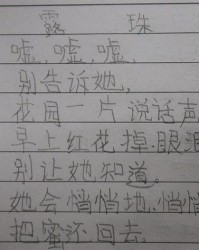 露 珠
嘘,嘘,嘘,
别告诉她,
花园一片说话声
早上红花掉眼泪
别让她知道。
她会悄悄地,悄悄
把蜜还回去